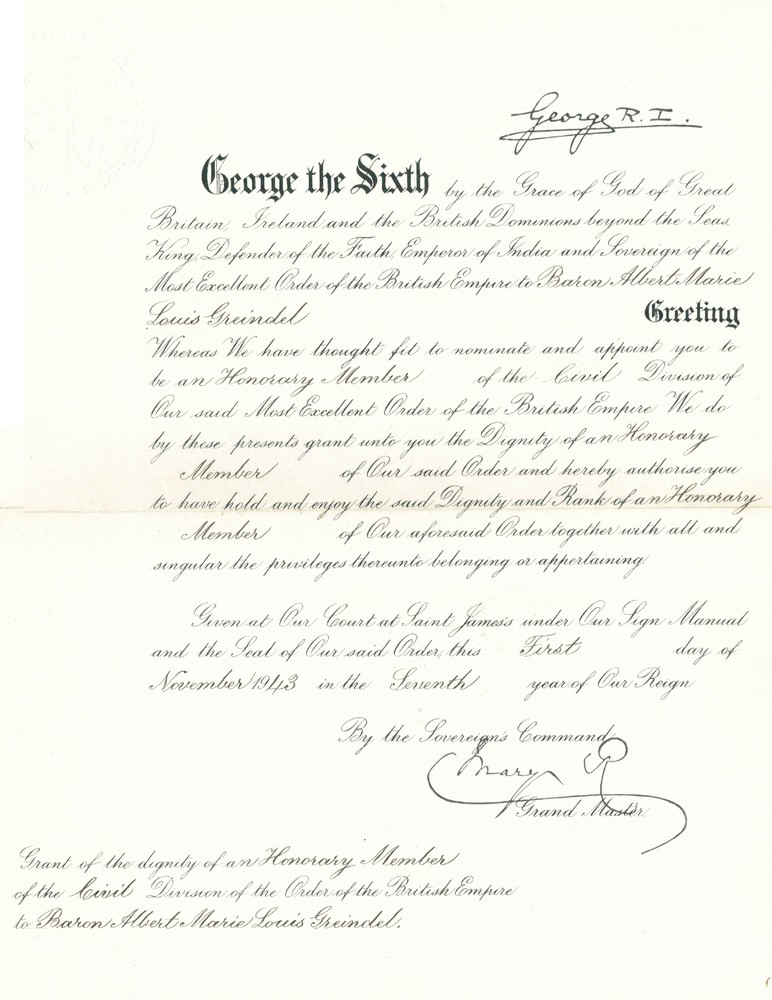 George R. I.
George the Sixth by the Grace of God of Great
Britain, Ireland and the British Dominions beyond the Seas,
King, Defender of the Faith, Emperor of India and Sovereign of the
Most Excellent Order of the British Empire to Baron Albert Marie
Louis Greindel Greeting
Whereas We have thought fit to nominate and appoint you to
be an Honorary Member of the Civil Division of
Our said Most Excellent Order of the British Empire We do
by these presents grant unto you the Dignity of an Honorary
Member of Our said Order and hereby authorise you
to have hold and enjoy the said Dignity and Rank of an Honorary
Member of Our aforesaid Order together with all and
singular the privileges thereunto belonging or appertaining.
Given at Our Court at Saint James's under Our Sign Manual
and the Seal of Our said Order, this First day of
November 1943 in the Seventh year of Our Reign
By the Sovereign's Command,
Mary R
Grand Master.
Grant of the dignity of an Honorary Member
of the Civil Division of the Order of the British Empire
to Baron Albert Marie Louis Greindel.